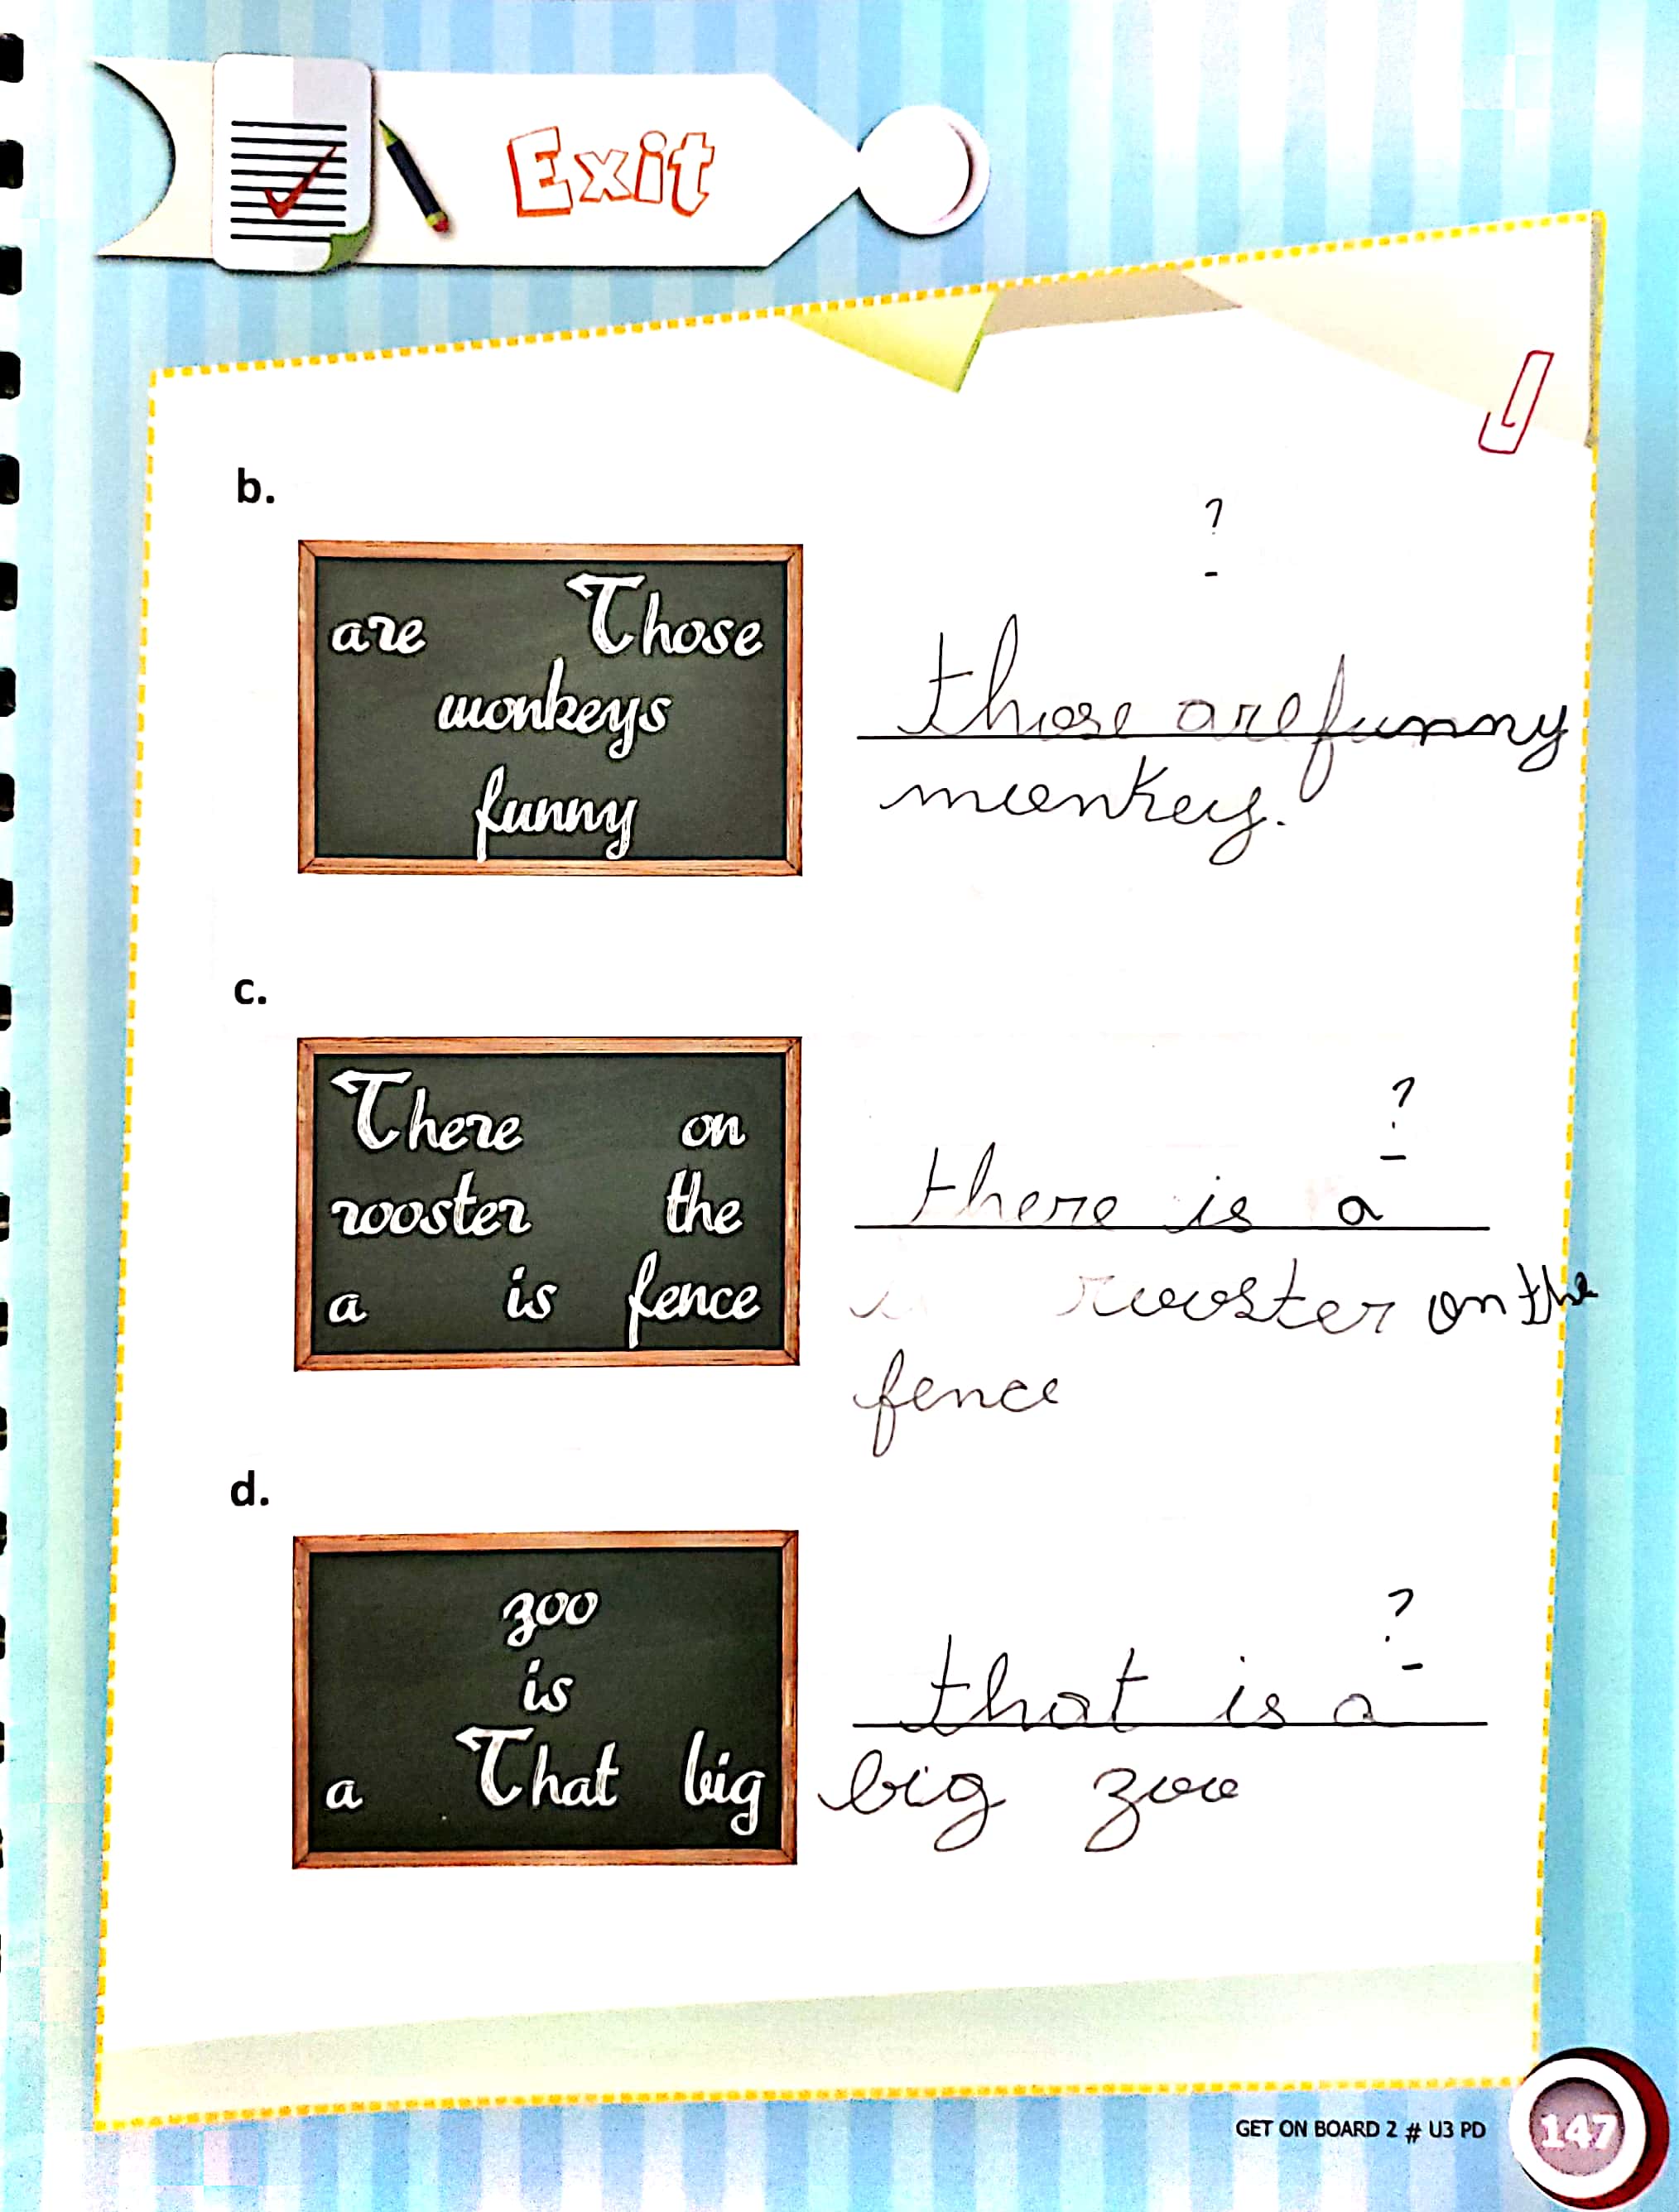 Exit
b.
?
-
are Those
monkeys
funny
those are funny
monkey.
c.
There on
rooster the
a is fence
?
-
there is a
rooster on the
fence
d.
zoo
is
a That big
?
-
that is a
big zoo
GET ON BOARD 2 # U3 PD
147